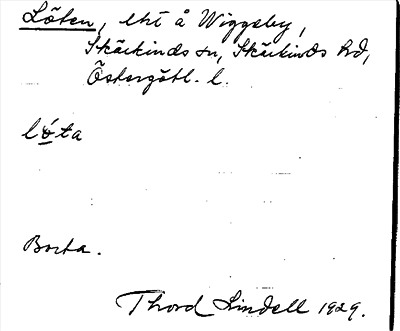 Löten, lht å Wiggeby,
Skärkinds sn, Skärkinds hd,
Östergötl. l.
ló̲ta
Borta.
Thord Lindell 1929.